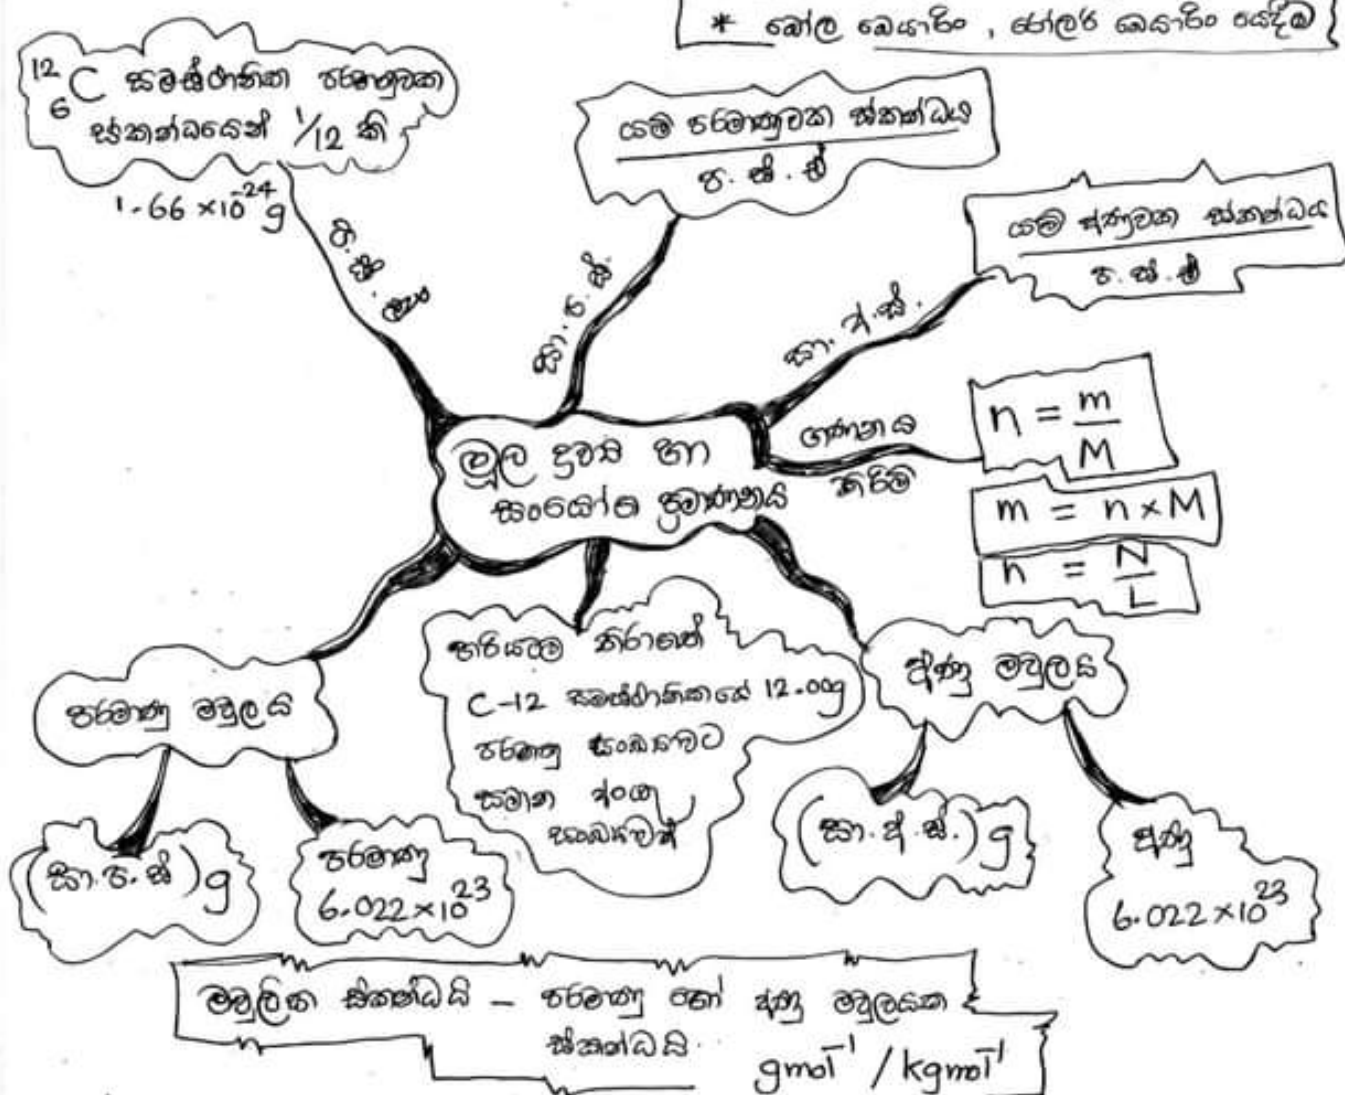 * බෝල බෙයාරිං , රෝලර් බෙයාරිං යෙදීම
12
6 C සමස්ථානික පරමාණුවක
ස්කන්ධයෙන් 1/12 කි
1.66 × 10^-24 g
යම් පරමාණුවක ස්කන්ධය
ප. ස්. ඒ
සා. ප. ස්.
යම් අණුවක ස්කන්ධය
ප. ස්. ඒ
සා. අ. ස්.
ගණනය
කිරීම්
n = m/M
m = n × M
n = N/L
මූල ද්‍රව්‍ය හා
සංයෝග ප්‍රමාණනය
පරමාණු මවුලය
(සා. ප. ස්) g
පරමාණු
6.022 × 10^23
හරියටම නිරාගත්
C-12 සමස්ථානිකයේ 12.00g
පරමාණු සංඛ්‍යාවට
සමාන අංශු
සංඛ්‍යාවක්
අණු මවුලය
(සා. අ. ස්.) g
අණු
6.022 × 10^23
මවුලික ස්කන්ධය – පරමාණු හෝ අණු මවුලයක
ස්කන්ධයි.
gmol^-1 / kgmol^-1